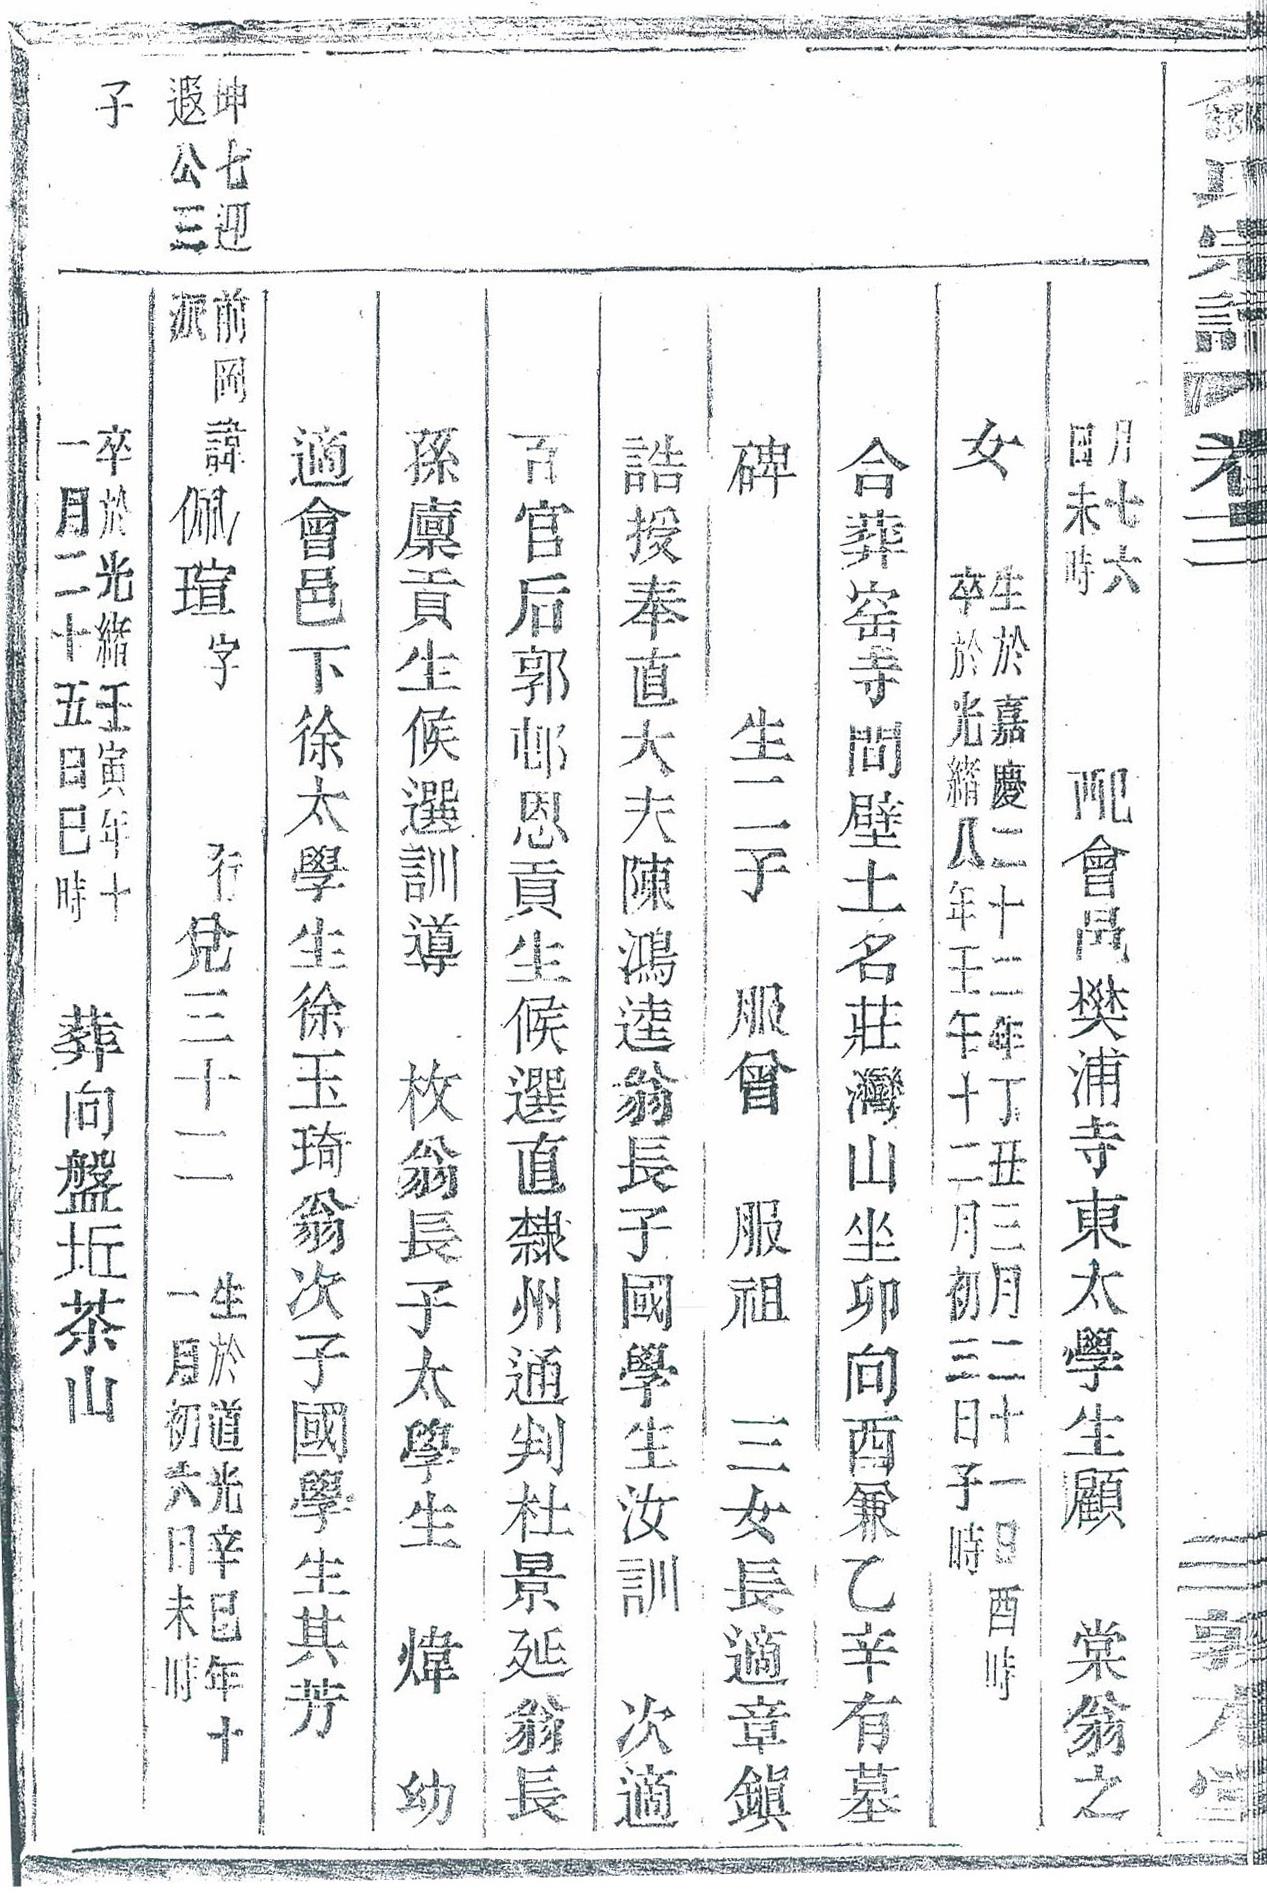 氏宗譜 卷三
月七六
日未時
配會邑樊浦寺東太學生顧 棠翁之
女
生於嘉慶二十二年丁丑三月二十一日酉時
卒於光緒八年壬午十二月初三日子時
合葬窑寺間壁土名莊灣山坐卯向酉兼乙辛有墓
碑 生二子 服曾 服祖 三女長適章鎮
誥授奉直大夫陳鴻逵翁長子國學生汝訓 次適
百官后郭邨恩貢生候選直隸州通判杜景延翁長
孫廩貢生候選訓導 枚翁長子太學生 煒 幼
適會邑下徐太學生徐玉琦翁次子國學生其芳
坤七迎
遐公三
子
前岡
派
諱佩瑄字 行兌三十二
生於道光辛巳年十
一月初六日未時
卒於光緒壬寅年十
一月二十五日巳時
葬向盤坵茶山